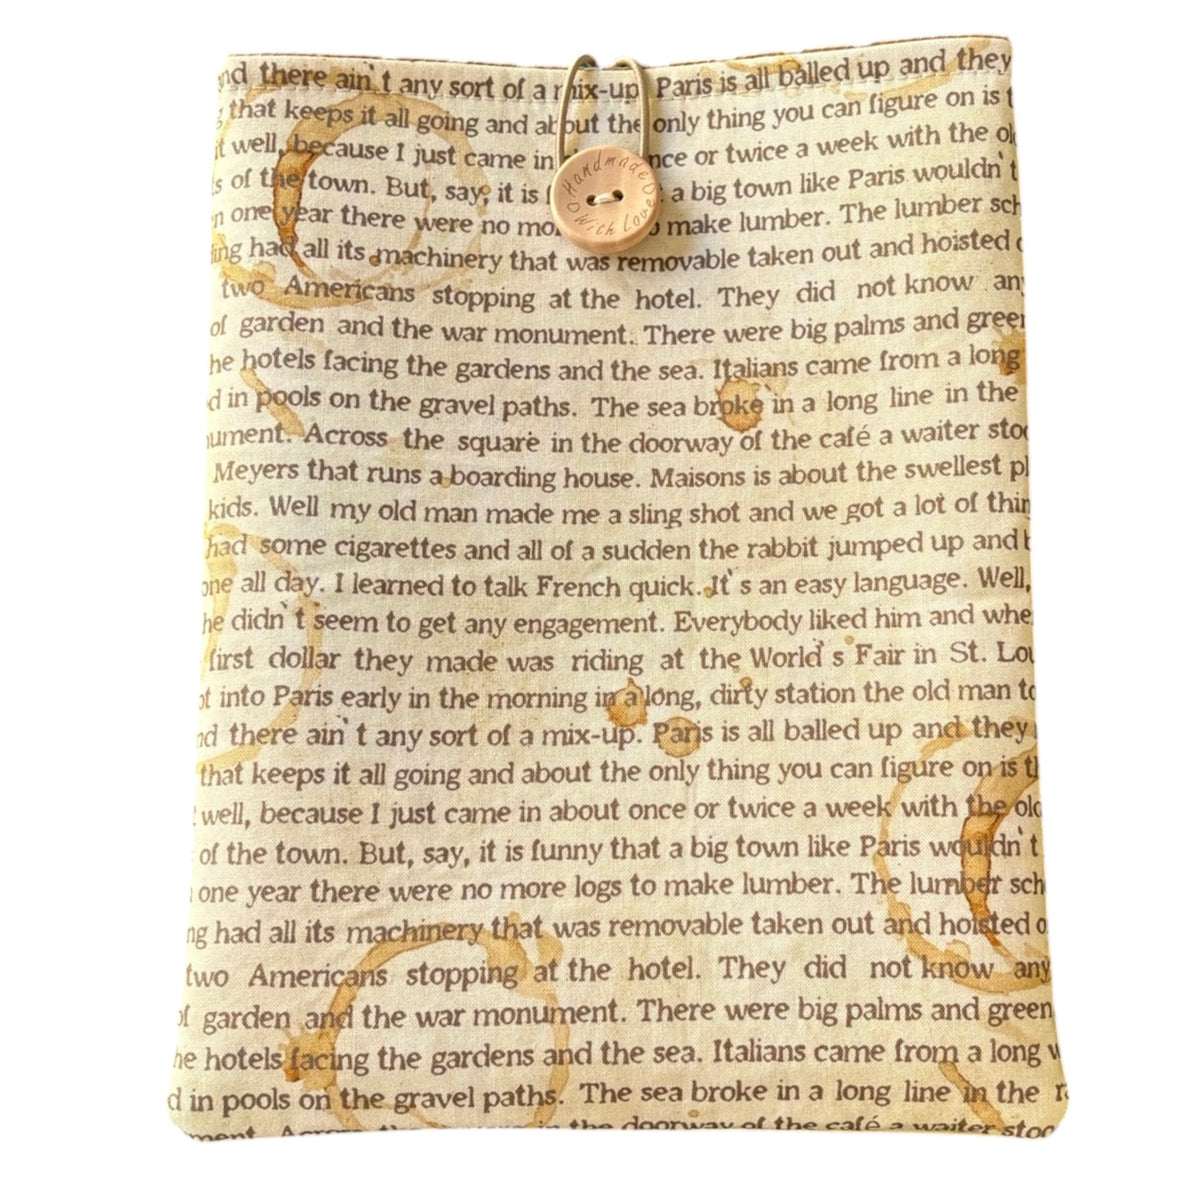 nd there ain't any sort of a mix-up. Paris is all balled up and they
that keeps it all going and about the only thing you can figure on is t
t well, because I just came in nce or twice a week with the old
s of the town. But, say, it is f a big town like Paris wouldn't
n one year there were no mor o make lumber. The lumber sch
ing had all its machinery that was removable taken out and hoisted o
two Americans stopping at the hotel. They did not know any
of garden and the war monument. There were big palms and green
he hotels facing the gardens and the sea. Italians came from a long
d in pools on the gravel paths. The sea broke in a long line in the
ument. Across the square in the doorway of the café a waiter stoo
Meyers that runs a boarding house. Maisons is about the swellest pl
kids. Well my old man made me a sling shot and we got a lot of thin
had some cigarettes and all of a sudden the rabbit jumped up and b
one all day. I learned to talk French quick. It's an easy language. Well,
he didn't seem to get any engagement. Everybody liked him and whe
first dollar they made was riding at the World's Fair in St. Lou
ot into Paris early in the morning in a long, dirty station the old man to
nd there ain't any sort of a mix-up. Paris is all balled up and they
that keeps it all going and about the only thing you can figure on is th
t well, because I just came in about once or twice a week with the old
of the town. But, say, it is funny that a big town like Paris wouldn't
one year there were no more logs to make lumber. The lumber sch
ng had all its machinery that was removable taken out and hoisted o
two Americans stopping at the hotel. They did not know any
of garden and the war monument. There were big palms and green
he hotels facing the gardens and the sea. Italians came from a long w
d in pools on the gravel paths. The sea broke in a long line in the ra
ment. Across the in the doorway of the café a waiter stoo
Handmade
With Love